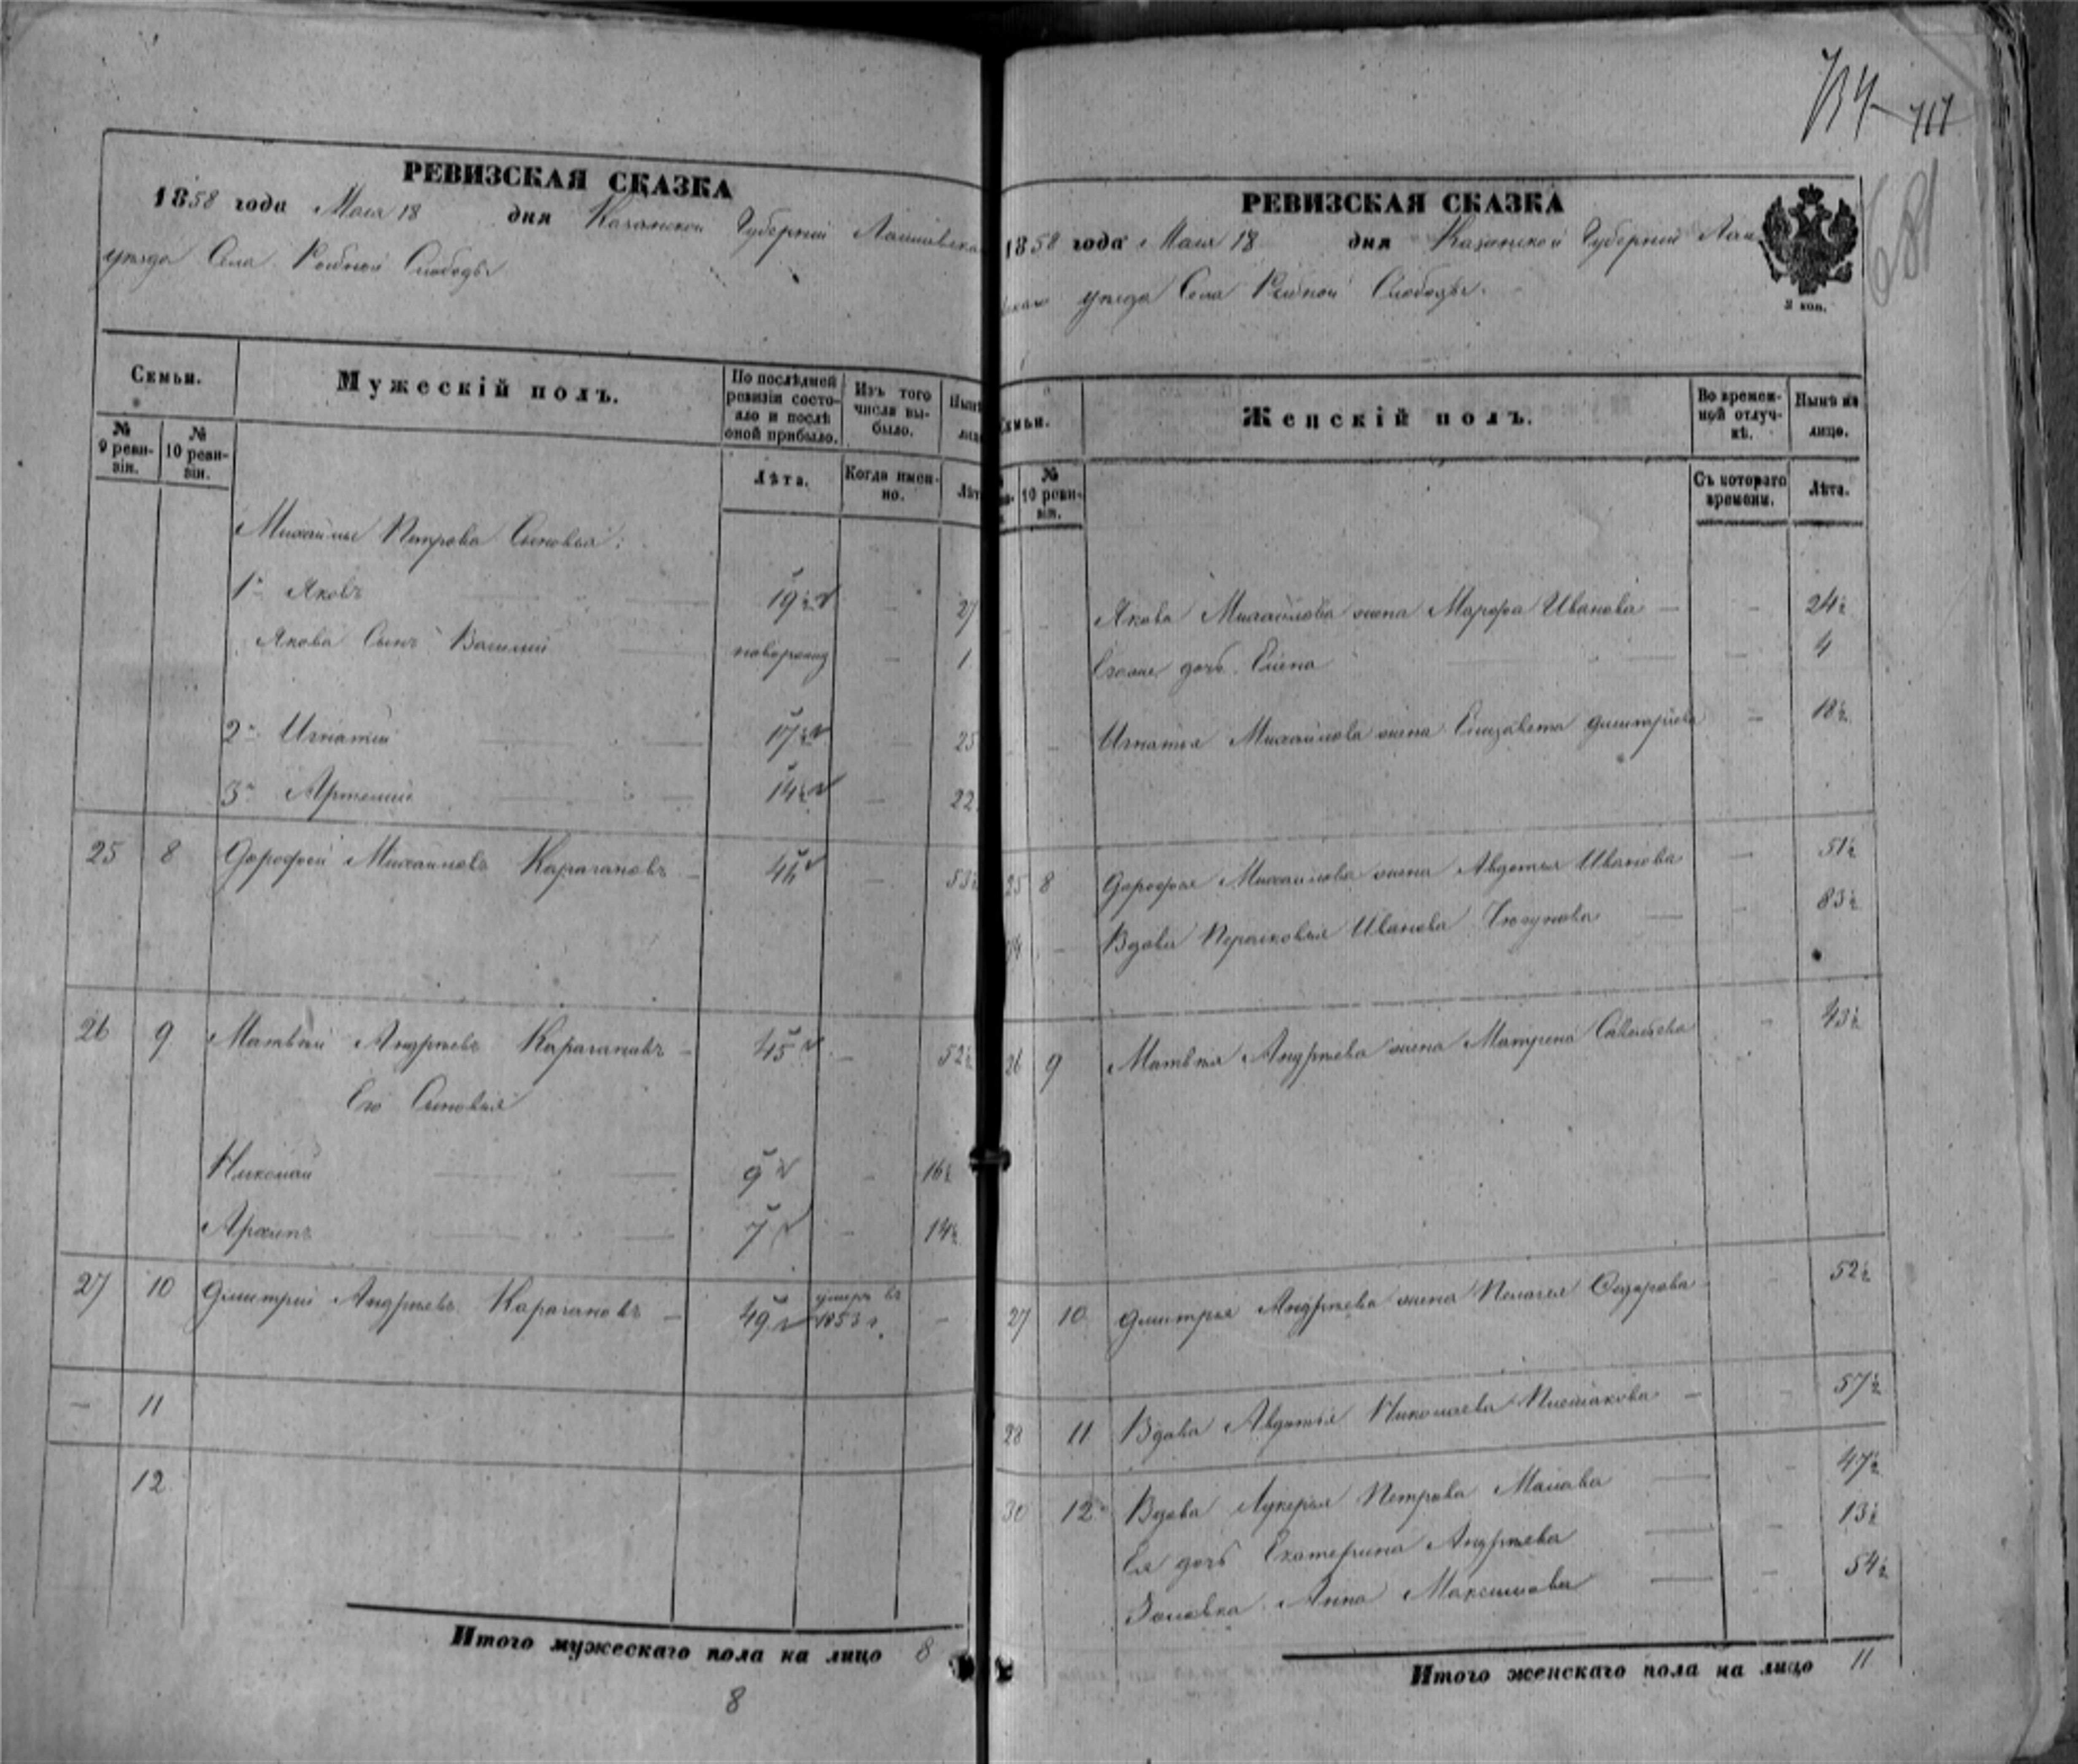 РЕВИЗСКАЯ СКАЗКА
1858 года Мая 18 дня Казанской Губернии
уезда Села Рыбной Слободы
Семьи.
Мужескій полъ.
По послѣдней ревизіи состояло и послѣ оной прибыло.
Изъ того числа выбыло.
№ 9 ревизіи.
№ 10 ревизіи.
Лѣта.
Когда именно.
Михайлы Петрова Сыновья:
1й Яковъ 19½ — 27
Якова Сынъ Василий новорожд — 1
2й Игнатий 17½ — 25
3й Артемий 14½ — 22
25 8 Дорофей Михайловъ Карагановъ — 53½
26 9 Матвей Андреевъ Карагановъ — 45 — 52½
Его Сыновья
Николай 9 — 16½
Архипъ 7 — 14½
27 10 Дмитрий Андреевъ Карагановъ — 49 умеръ въ 1853 г. —
— 11
12
Итого мужескаго пола на лицо 8
8
734 711
681
РЕВИЗСКАЯ СКАЗКА
1858 года Мая 18 дня Казанской Губернии Лаи
уезда Села Рыбной Слободы.
Женскій полъ.
Во временной отлучкѣ.
Нынѣ на лицо.
№ 10 ревизіи.
Съ котораго времени.
Лѣта.
Якова Михайлова жена Марфа Иванова — — 24½
Его же дочь Елена — 4
Игнатья Михайлова жена Елизавета Дмитриева — 18½
25 8 Дорофея Михайлова жена Авдотья Иванова — 51½
Вдова Иванова — — 83½
26 9 Матвея Андреева жена Матрена Савельева — 43½
27 10 Дмитрия Андреева жена Пелагея 52½
28 11 Вдова Авдотья Николаева — — 57½
30 12 Вдова Лукерья Петрова — — 47½
Ея дочь Екатерина Андреева — — 13½
Золовка Анна Максимова — — 54½
Итого женскаго пола на лицо 11